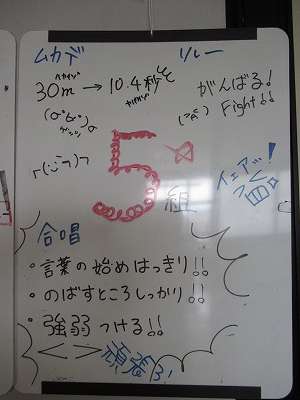 ムカデ リレー
30m → 10.4秒
がんばる!
Fight!!
5☆
組
合唱
・言葉の始めはっきり!!
・のばすところしっかり!!
・強弱つける!!
< >
頑張る!